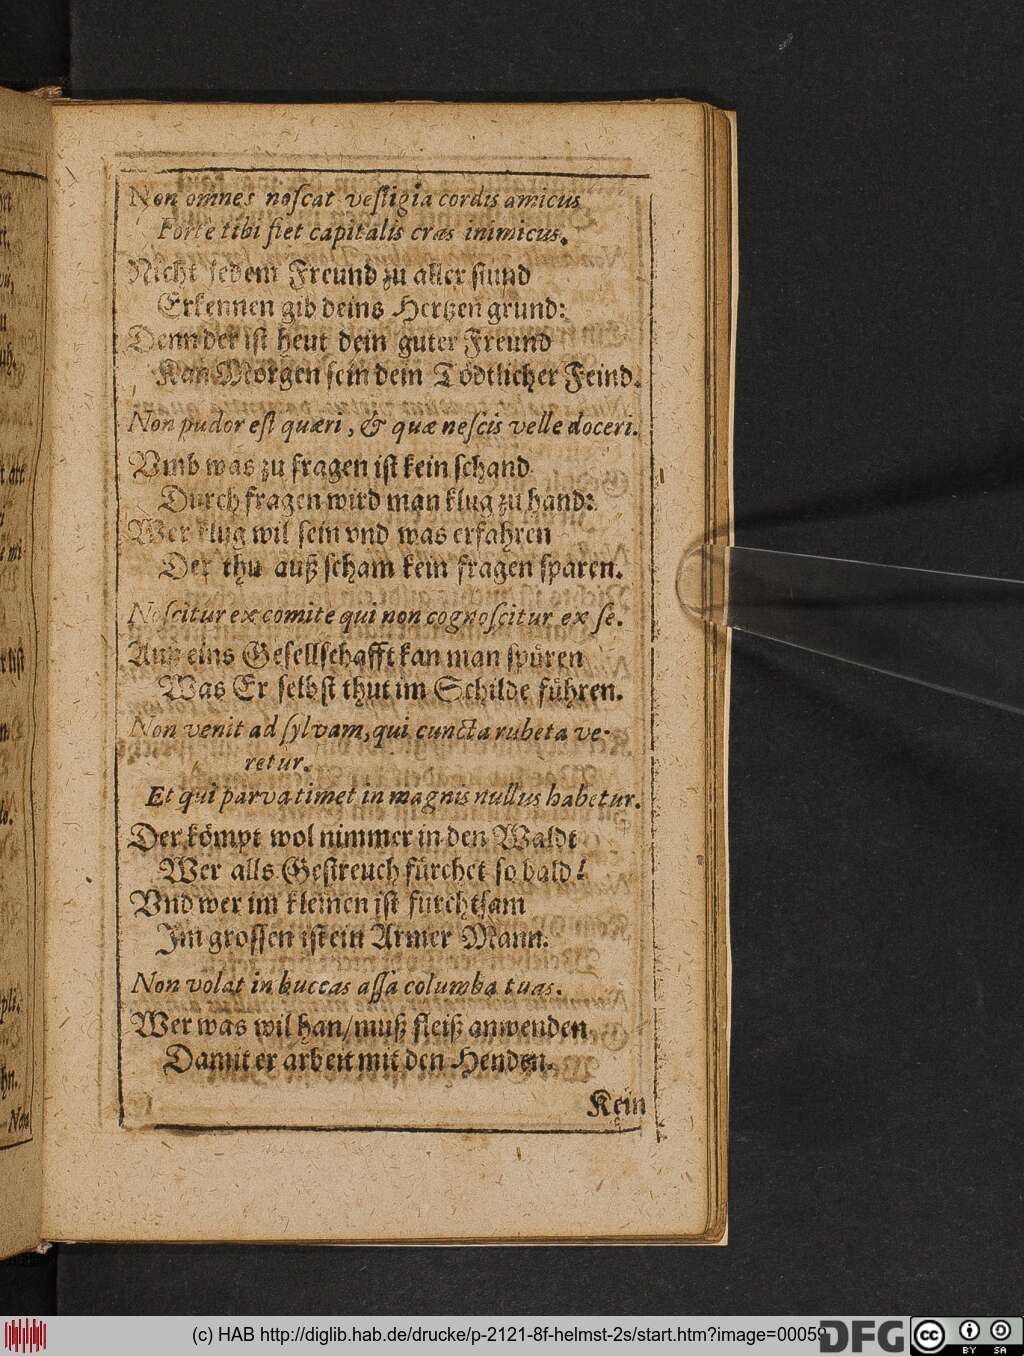 Non omnes noſcat veſtigia cordis amicus
Forte tibi fiet capitalis cras inimicus.
Nicht jedem Freund zu aller ſtund
Erkennen gib deins Hertzen grund:
Denn der iſt heut dein guter Freund
Kan Morgen ſein dein Tödtlicher Feind.
Non pudor eſt quæri, & quæ neſcis velle doceri.
Vmb was zu fragen iſt kein ſchand
Durch fragen wird man klug zu hand:
Wer klug wil ſein vnd was erfahren
Der thu auß ſcham kein fragen ſparen.
Noſcitur ex comite qui non cognoſcitur ex ſe.
Auß eins Geſellſchafft kan man ſpüren
Was Er ſelbſt thut im Schilde führen.
Non venit ad ſylvam, qui cuncta rubeta ve-
retur.
Et qui parva timet in magnis nullus habetur.
Der kömpt wol nimmer in den Waldt
Wer alls Geſtreuch fürchet ſo bald!
Vnd wer im kleinen iſt furchtſam
Im groſſen iſt ein Armer Mann.
Non volat in buccas aſſa columba tuas.
Wer was wil han/ muß fleiß anwenden
Damit er arbeit mit den Henden.
Kein
(c) HAB http://diglib.hab.de/drucke/p-2121-8f-helmst-2s/start.htm?image=00059
DFG
cc
BY SA